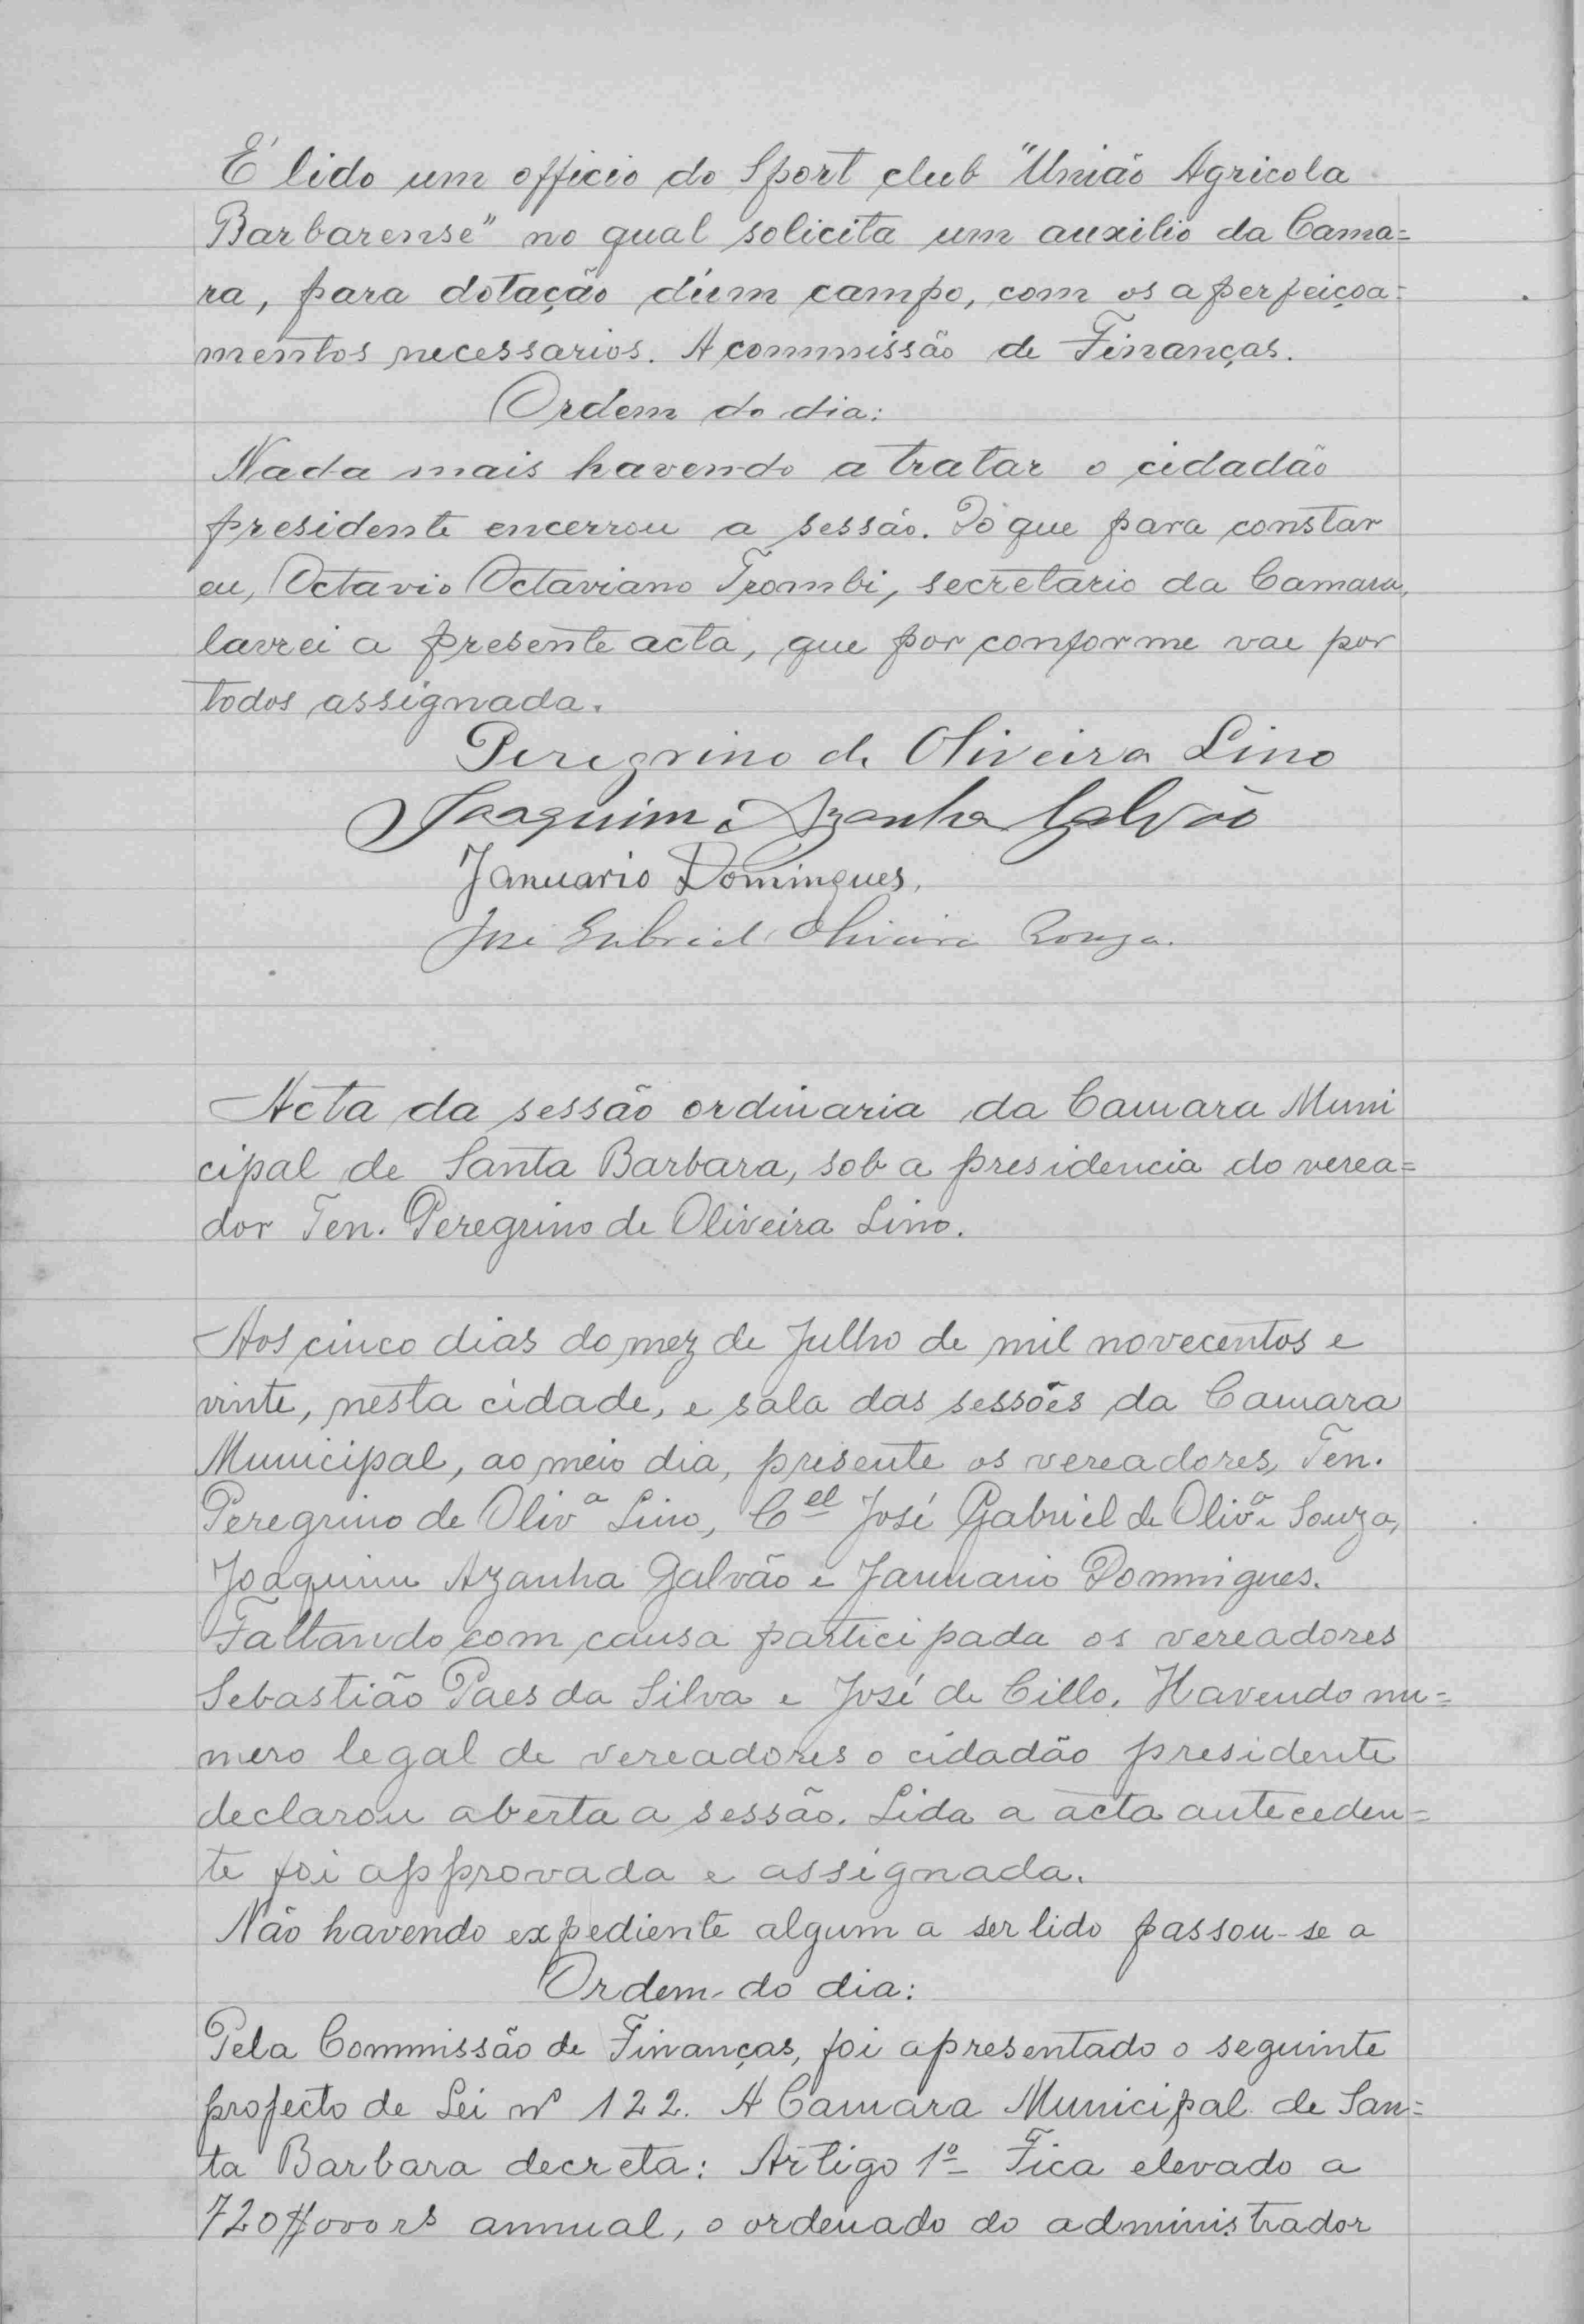 É lido um officio do Sport club "União Agricola
Barbarense" no qual solicita um auxilio da Cama=
ra, para dotação d'um campo, com os aperfeiçoa=
mentos necessarios. A commissão de Finanças.
Ordem do dia:
Nada mais havendo a tratar o cidadão
presidente encerrou a sessão. Do que para constar
eu, Octavio Octaviano Trombi, secretario da Camara,
lavrei a presente acta, que por conforme vae por
todos assignada.
Peregrino de Oliveira Lino
Joaquim Azanha Galvão
Januario Domingues.
José Gabriel Oliveira Souza.
Acta da sessão ordinaria da Camara Muni
cipal de Santa Barbara, sob a presidencia do verea=
dor Ten. Peregrino de Oliveira Lino.
Aos cinco dias do mez de Julho de mil novecentos e
vinte, nesta cidade, e sala das sessões da Camara
Municipal, ao meio dia, presente os vereadores, Ten.
Peregrino de Olivª Lino, Cel José Gabriel de Olivª Souza,
Joaquim Azanha Galvão e Januario Domingues.
Faltando com causa participada os vereadores
Sebastião Paes da Silva e José de Cillo. Havendo nu=
mero legal de vereadores o cidadão presidente
declarou aberta a sessão. Lida a acta anteceden=
te foi approvada e assignada.
Não havendo expediente algum a ser lido passou-se a
Ordem do dia:
Pela Commissão de Finanças, foi apresentado o seguinte
projecto de Lei nº 122. A Camara Municipal de San=
ta Barbara decreta: Artigo 1º Fica elevado a
720$000 rs annual, o ordenado do administrador